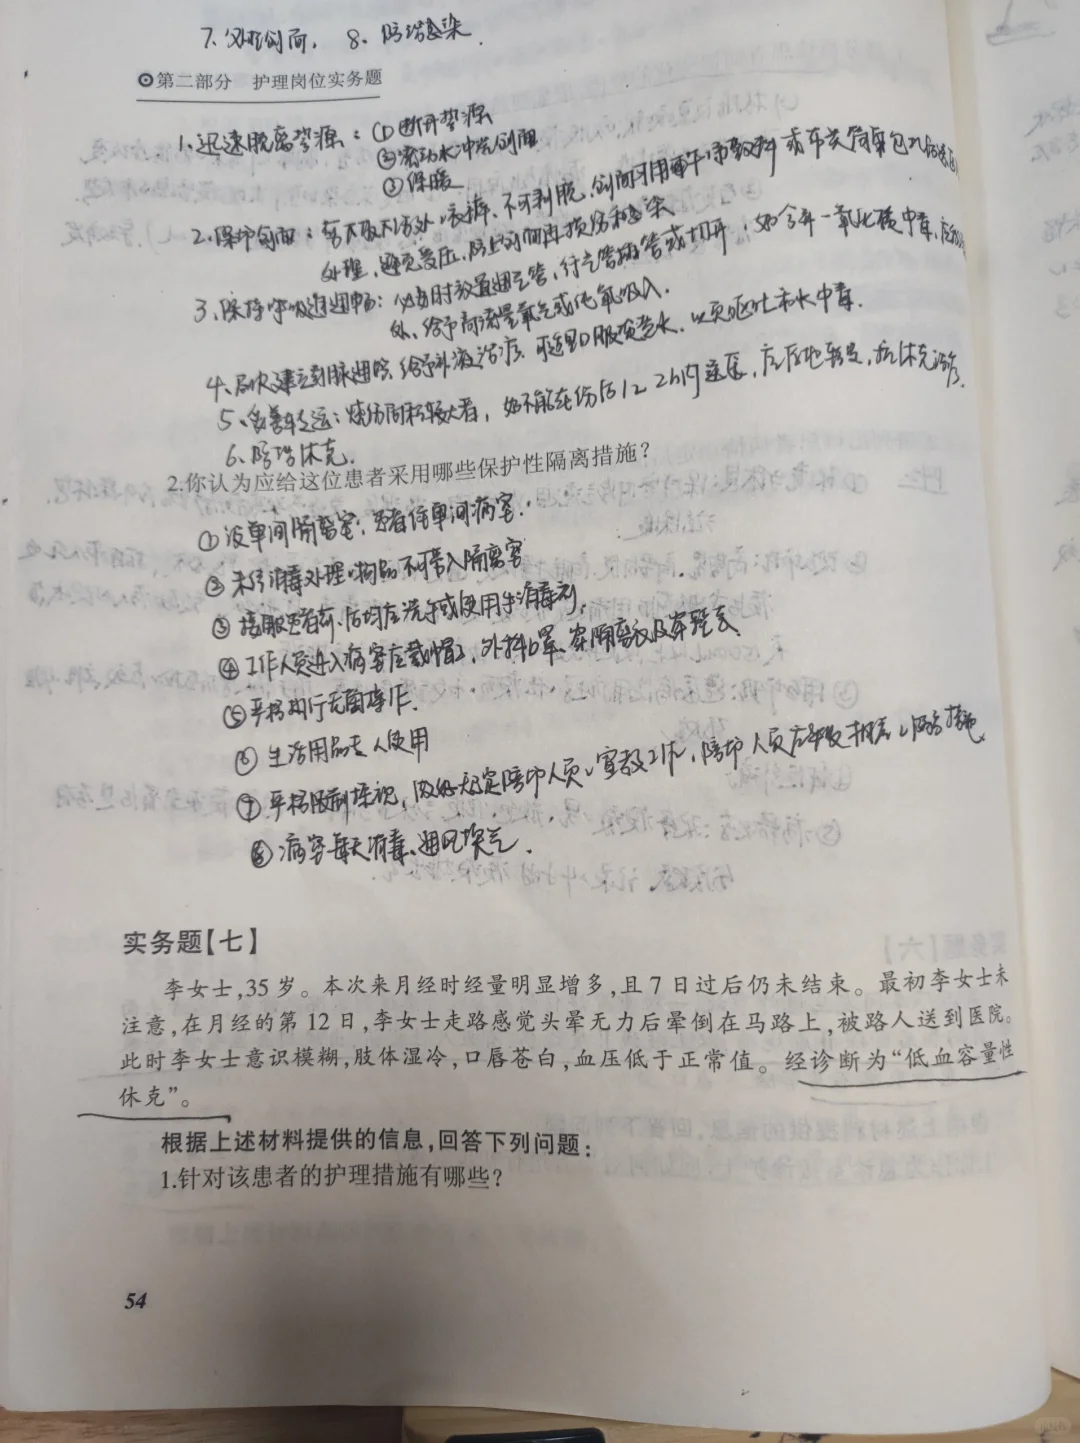 7、处理创面. 8、防治感染.
第二部分 护理岗位实务题
1、迅速脱离热源：①断开热源
②流动水冲洗创面
③保暖
2、保护创面：剪下伤处衣裤、不可剥脱、创面可用干净敷料或布类简单包扎后送医
处理, 避免受压, 防止创面再损伤和感染
3、保持呼吸道通畅：必要时放置通气管, 行气管插管或切开, 如合并一氧化碳中毒, 应
外、给予高流量氧气或纯氧吸入.
4、尽快建立静脉通路, 给予补液治疗、可适量口服淡盐水、以免呕吐和水中毒.
5、妥善转运：烧伤面积较大者, 如不能在伤后1~2h内送医, 应原地转复, 抗休克治疗.
6、防治休克.
2.你认为应给这位患者采用哪些保护性隔离措施？
①设单间隔离室；患者住单间病室.
②未经消毒处理的物品不可带入隔离室
③接触患者前、后均应洗手或使用手消毒剂,
④工作人员进入病室应戴帽子、外科口罩、穿隔离衣及穿鞋套、
⑤严格执行无菌操作.
⑥生活用品专人使用
⑦严格限制探视, 做好固定陪护人员的宣教工作, 陪护人员应采取相应的防护措施
⑧病室每天消毒、通风换气.
实务题【七】
李女士,35岁。本次来月经时经量明显增多,且7日过后仍未结束。最初李女士未
注意,在月经的第12日,李女士走路感觉头晕无力后晕倒在马路上,被路人送到医院。
此时李女士意识模糊,肢体湿冷,口唇苍白,血压低于正常值。经诊断为“低血容量性
休克”。
根据上述材料提供的信息,回答下列问题：
1.针对该患者的护理措施有哪些？
54